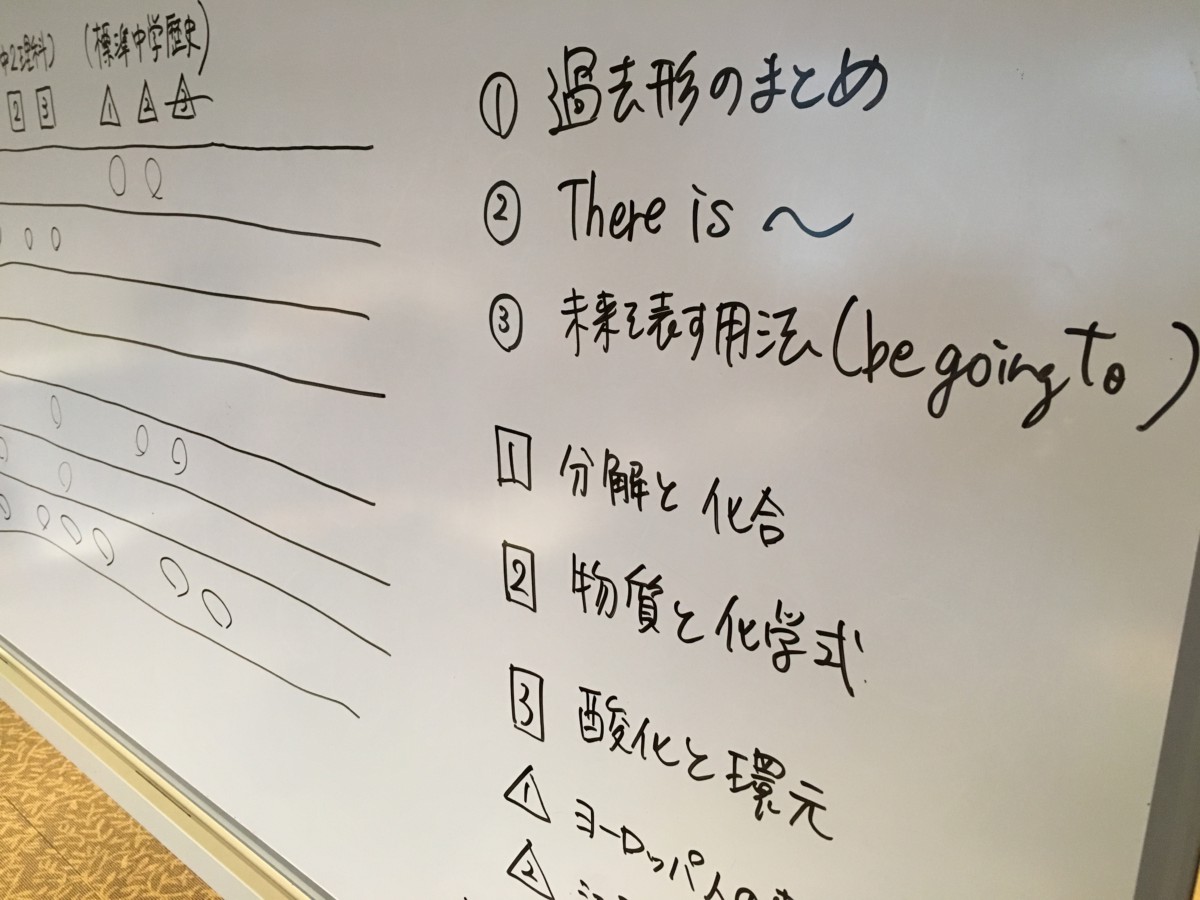 中2理科) (標準中学歴史)
2 3 1 2 3
① 過去形のまとめ
② There is ～
③ 未来を表す用法 (be going to)
1 分解と化合
2 物質と化学式
3 酸化と環元
1 ヨーロッパ人の
2